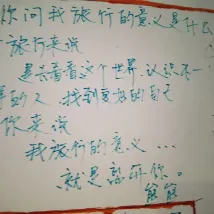 你问我旅行的意义是什么
旅行来说
是去看看这个世界.认识不一
样的人 找到更好的自己
你来说
我旅行的意义...
就是离开你。
熊熊